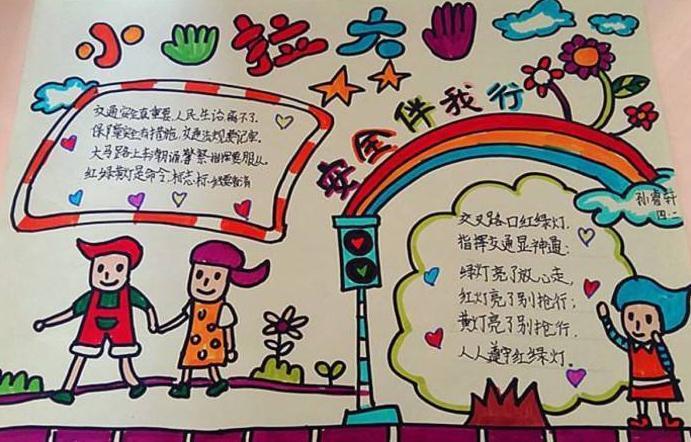 小 拉 大
安全伴我行
交通安全真重要,人民生活离不了.
保障安全有措施,交通法规要记牢.
大马路上车潮涌,警察指挥要服从.
红绿黄灯是命令,标志标线要看清
孙睿轩
四.一
交叉路口红绿灯.
指挥交通显神通:
绿灯亮了放心走,
红灯亮了别抢行;
黄灯亮了别抢行.
人人遵守红绿灯.